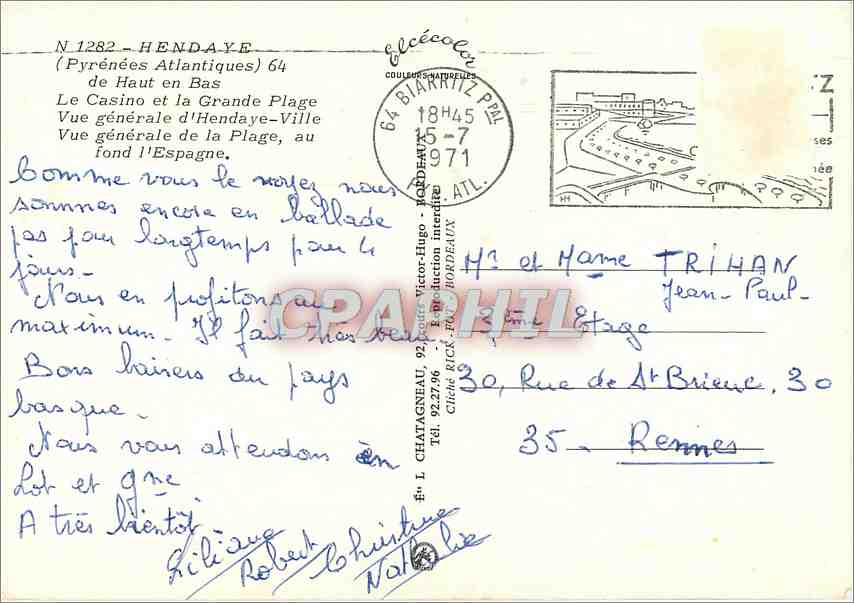 N 1282 - HENDAYE
(Pyrénées Atlantiques) 64
de Haut en Bas
Le Casino et la Grande Plage
Vue générale d'Hendaye-Ville
Vue générale de la Plage, au
fond l'Espagne.
Comme vous le voyez nous
sommes encore en ballade
pas pour longtemps pour 4
jours -
Nous en profitons au
maximum - Il fait très beau
Bons baisers du pays
basque -
Nous vous attendons en
Lot et Gne
A très bientôt
Liliane
Robert
Christine
Nathalie
Elcécolor
COULEURS NATURELLES
Éns L CHATAGNEAU, 92, cours Victor-Hugo - BORDEAUX
Tél. 92.27.96 - Reproduction interdite
Cliché RICK-FOT BORDEAUX
64 BIARRITZ Ppal
18H45
15-7
1971
ATL.
Z
ses
née
HH
Mr et Mame TRIHAN
Jean-Paul-
3ème Etage
30, Rue de St Brieuc, 30
35 - Rennes
CPAPHIL